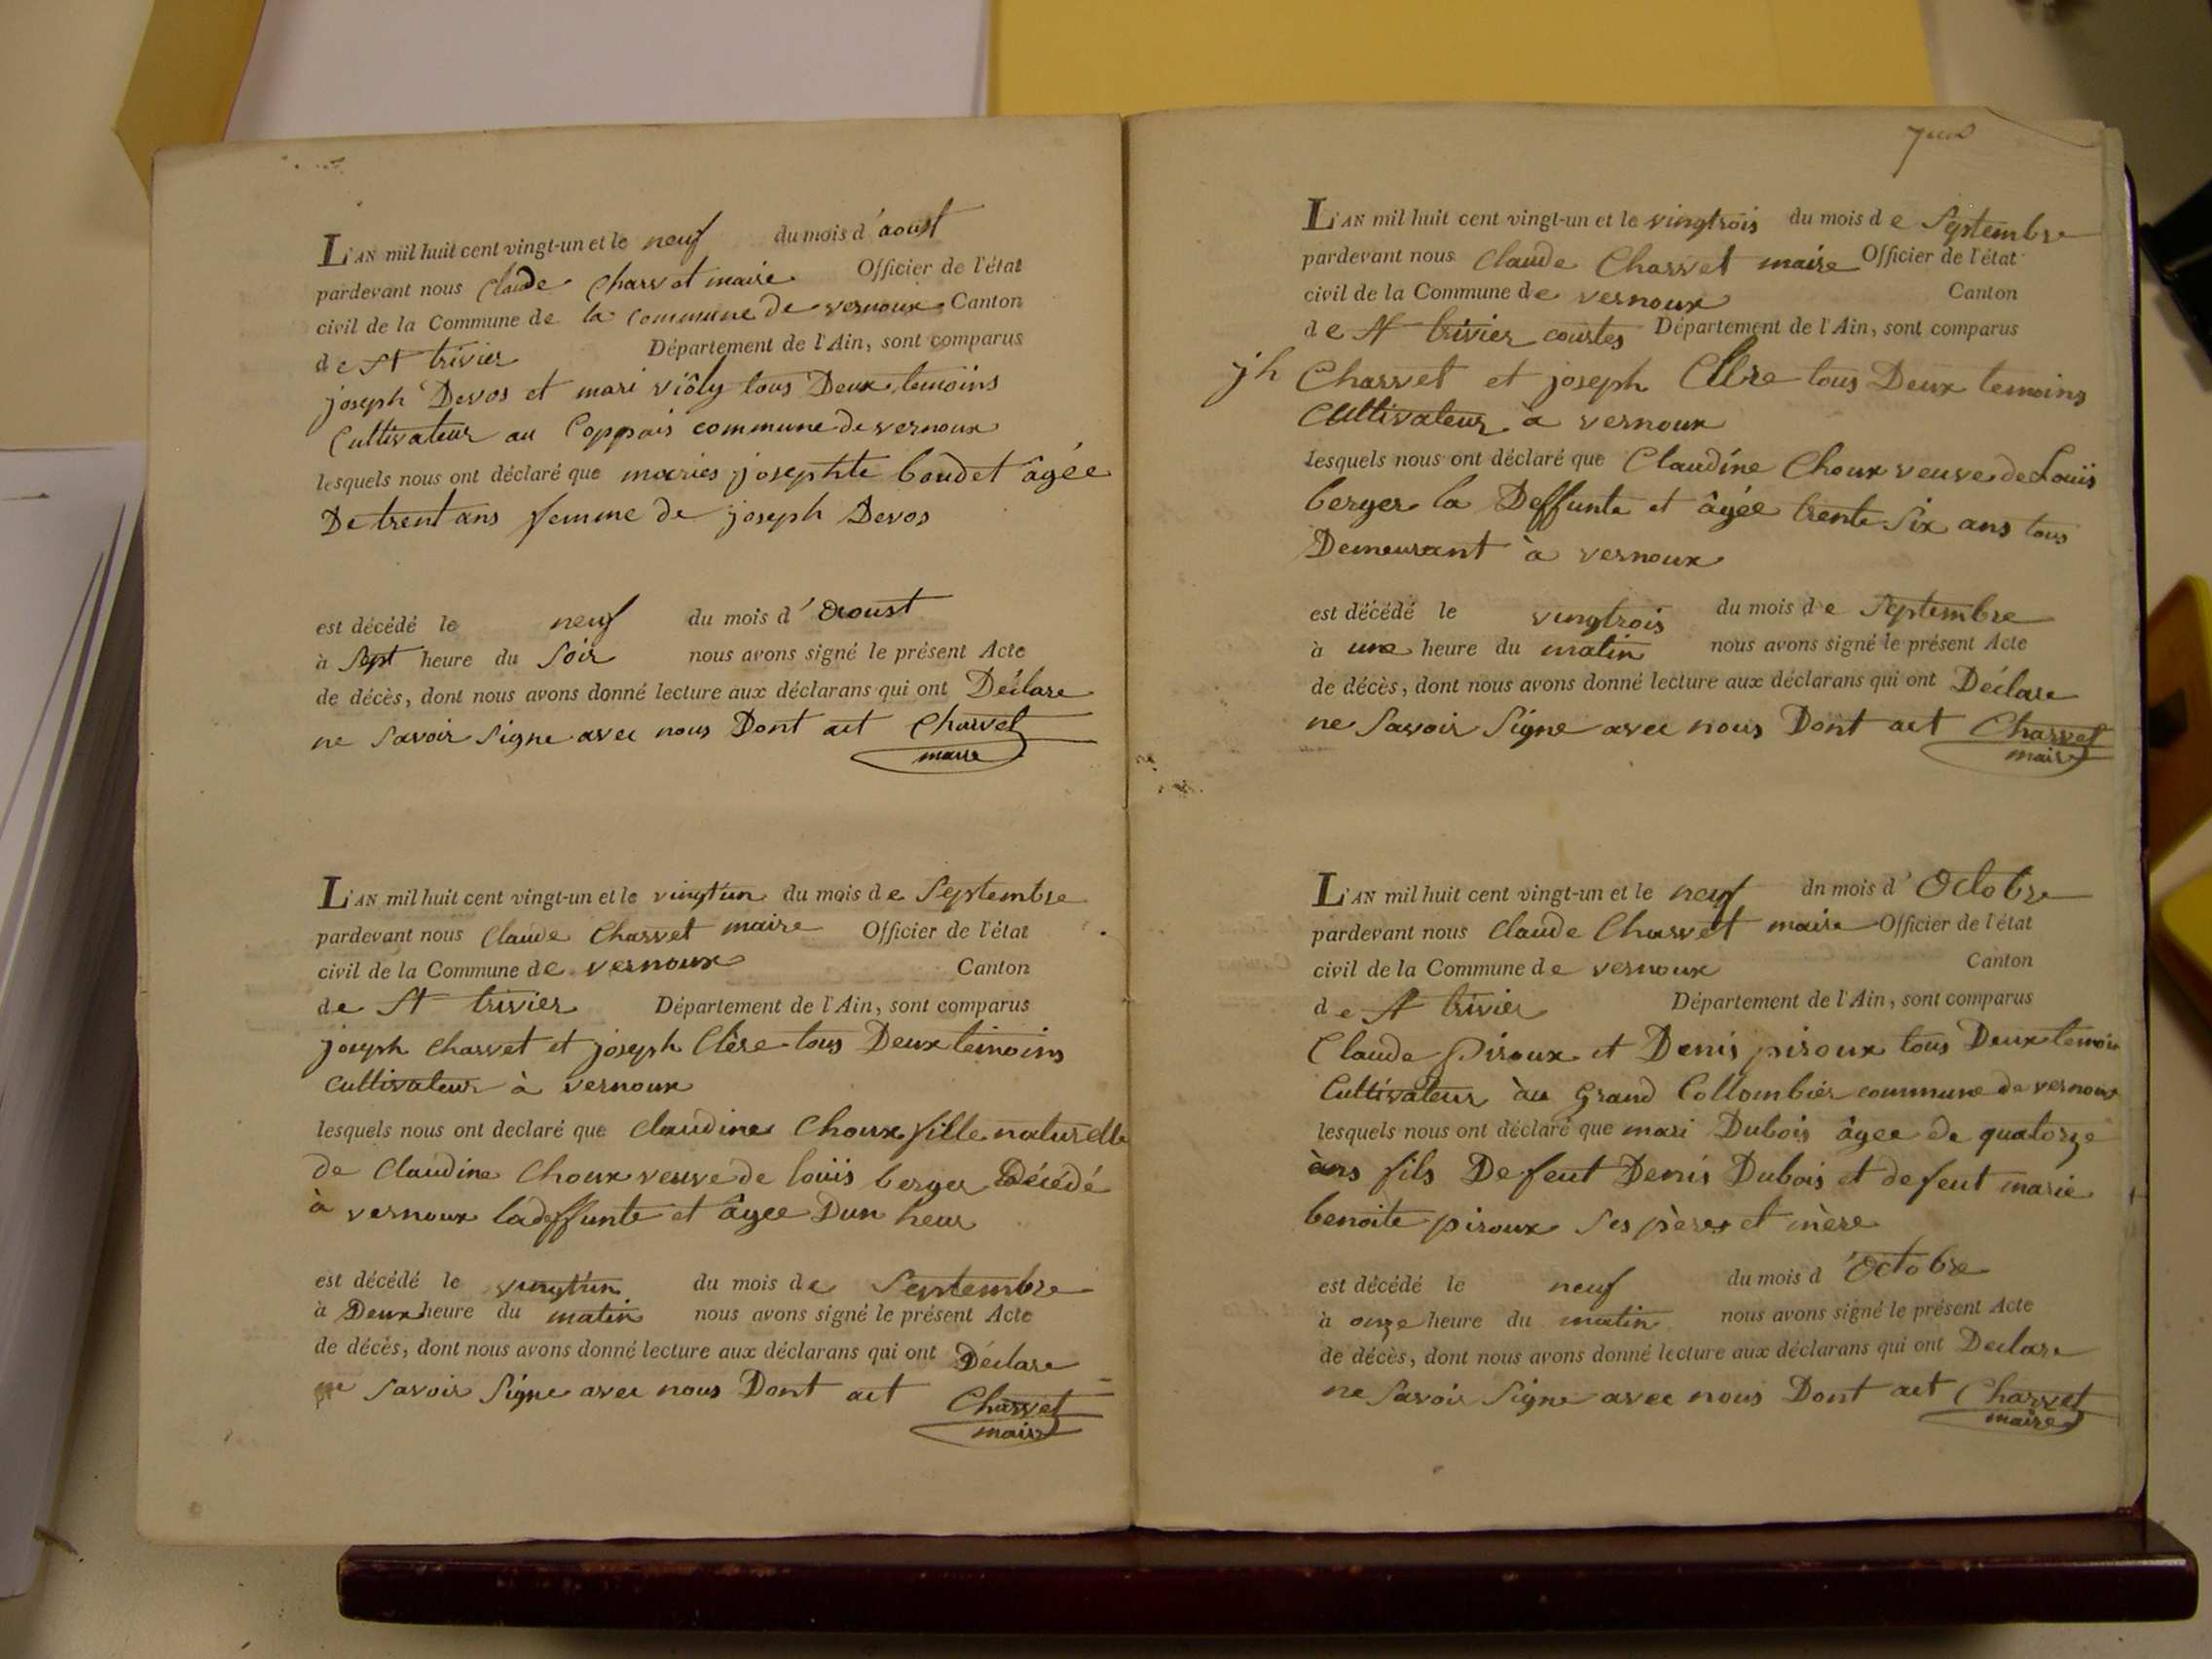 L'AN mil huit cent vingt-un et le neuf du mois d'aoust
pardevant nous Claude Charvet maire Officier de l'état
civil de la Commune de la commune de vernoux Canton
de St trivier Département de l'Ain, sont comparus
joseph Devos et mari viôly tous Deux temoins
Cultivateur au Coppais commune de vernoux
lesquels nous ont déclaré que maries josephte boudet âgée
De trent ans femme de joseph Devos
est décédé le neuf du mois d'aoust
à Sept heure du Soir nous avons signé le présent Acte
de décès, dont nous avons donné lecture aux déclarans qui ont Déclare
ne Savoir Signe avec nous Dont act Charvet
maire
L'AN mil huit cent vingt-un et le vingtun du mois de Septembre
pardevant nous Claude Charvet maire Officier de l'état
civil de la Commune de vernoux Canton
de St trivier Département de l'Ain, sont comparus
joseph Charvet et joseph Clère tous Deux temoins
Cultivateur à vernoux
lesquels nous ont declaré que Claudine Choux fille naturelle
de Claudine Choux veuve de louïs berger Décédé
à vernoux la deffunte et âgee Dun heur
est décédé le vingtun du mois de Septembre
à Deux heure du matin nous avons signé le présent Acte
de décès, dont nous avons donné lecture aux déclarans qui ont Déclare
ne Savoir Signe avec nous Dont act Charvet
maire
L'AN mil huit cent vingt-un et le vingtrois du mois de Septembre
pardevant nous Claude Charvet maire Officier de l'état
civil de la Commune de vernoux Canton
de St trivier courtes Département de l'Ain, sont comparus
jh Charvet et joseph Clere tous Deux temoins
Cultivateur à vernoux
lesquels nous ont déclaré que Claudine Choux veuve de Louïs
berger la Deffunte et âgée trente Six ans tous
Demeurant à vernoux
est décédé le vingtrois du mois de Septembre
à une heure du matin nous avons signé le présent Acte
de décès, dont nous avons donné lecture aux déclarans qui ont Déclare
ne Savoir Signe avec nous Dont act Charvet
maire
L'AN mil huit cent vingt-un et le neuf dn mois d'Octobre
pardevant nous Claude Charvet maire Officier de l'état
civil de la Commune de vernoux Canton
de St trivier Département de l'Ain, sont comparus
Claude Piroux et Denis piroux tous Deux temoin
Cultivateur àu Grand Collombier commune de vernoux
lesquels nous ont déclaré que mari Dubois âgee de quatorze
àns fils De feut Denis Dubois et de feut marie
benoite piroux Ses pères et mère
est décédé le neuf du mois d'Octobre
à onze heure du matin nous avons signé le présent Acte
de décès, dont nous avons donné lecture aux déclarans qui ont Declare
ne Savoir Signe avec nous Dont act Charvet
maire